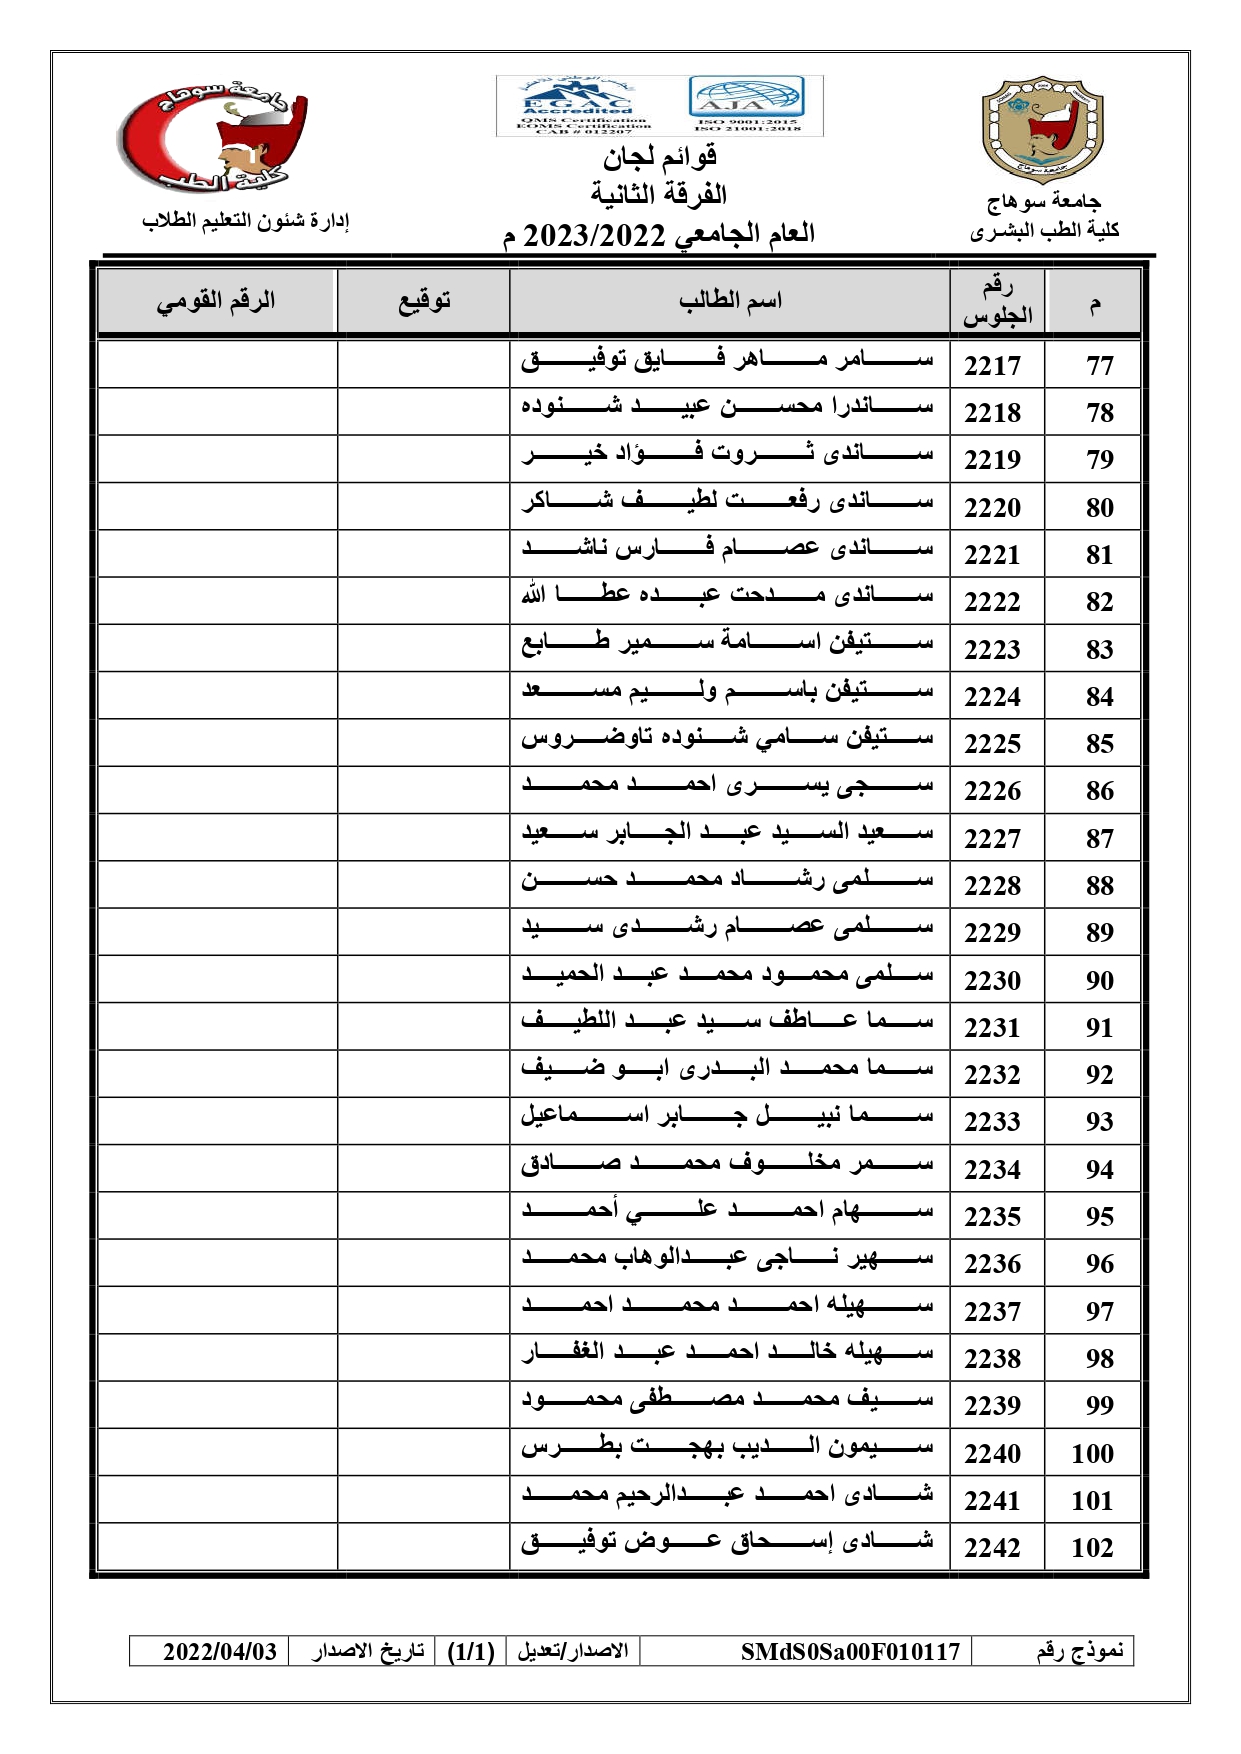 جامعة سوهاج
كلية الطب البشرى
المجلس الوطني للاعتماد
EGAC
Accredited
QMS Certification
EOMS Certification
CAB # 012207
AJA
ISO 9001:2015
ISO 21001:2018
قوائم لجان
الفرقة الثانية
العام الجامعي 2023/2022 م
جامعة سوهاج
كلية الطب
إدارة شئون التعليم الطلاب
م رقم الجلوس اسم الطالب توقيع الرقم القومي
77 2217 سامر ماهر فايق توفيق
78 2218 ساندرا محسن عبيد شنوده
79 2219 ساندى ثروت فؤاد خير
80 2220 ساندى رفعت لطيف شاكر
81 2221 ساندى عصام فارس ناشد
82 2222 ساندى مدحت عبده عطا الله
83 2223 ستيفن اسامة سمير طابع
84 2224 ستيفن باسم وليم مسعد
85 2225 ستيفن سامي شنوده تاوضروس
86 2226 سجى يسرى احمد محمد
87 2227 سعيد السيد عبد الجابر سعيد
88 2228 سلمى رشاد محمد حسن
89 2229 سلمى عصام رشدى سيد
90 2230 سلمى محمود محمد عبد الحميد
91 2231 سما عاطف سيد عبد اللطيف
92 2232 سما محمد البدرى ابو ضيف
93 2233 سما نبيل جابر اسماعيل
94 2234 سمر مخلوف محمد صادق
95 2235 سهام احمد علي أحمد
96 2236 سهير ناجى عبدالوهاب محمد
97 2237 سهيله احمد محمد احمد
98 2238 سهيله خالد احمد عبد الغفار
99 2239 سيف محمد مصطفى محمود
100 2240 سيمون الديب بهجت بطرس
101 2241 شادى احمد عبدالرحيم محمد
102 2242 شادى إسحاق عوض توفيق
نموذج رقم SMdS0Sa00F010117 الاصدار/تعديل (1/1) تاريخ الاصدار 2022/04/03